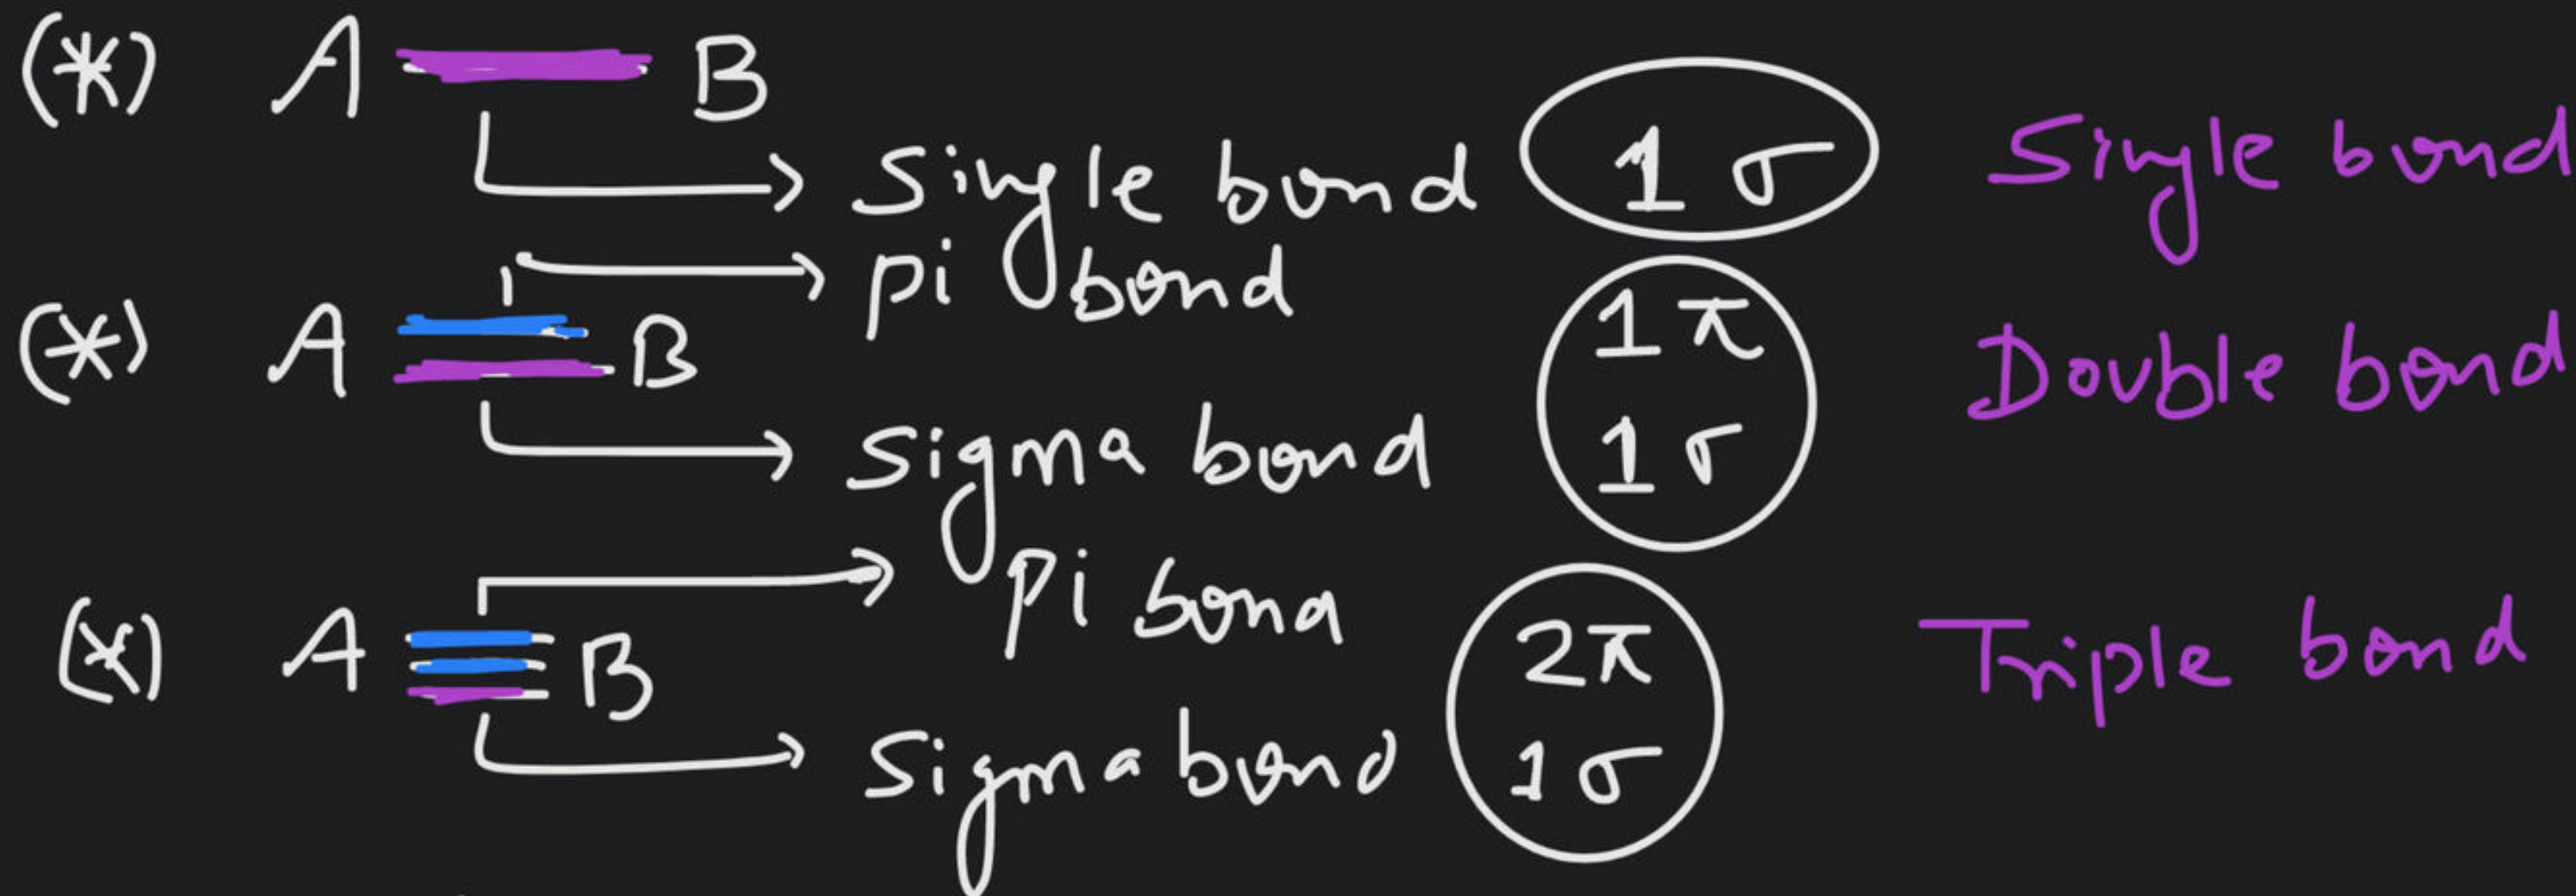 (*) A — B
Single bond 1 σ Single bond
pi bond
(*) A = B 1 π Double bond
Sigma bond 1 σ
pi bond
(*) A ≡ B 2π Triple bond
Sigma bond 1 σ